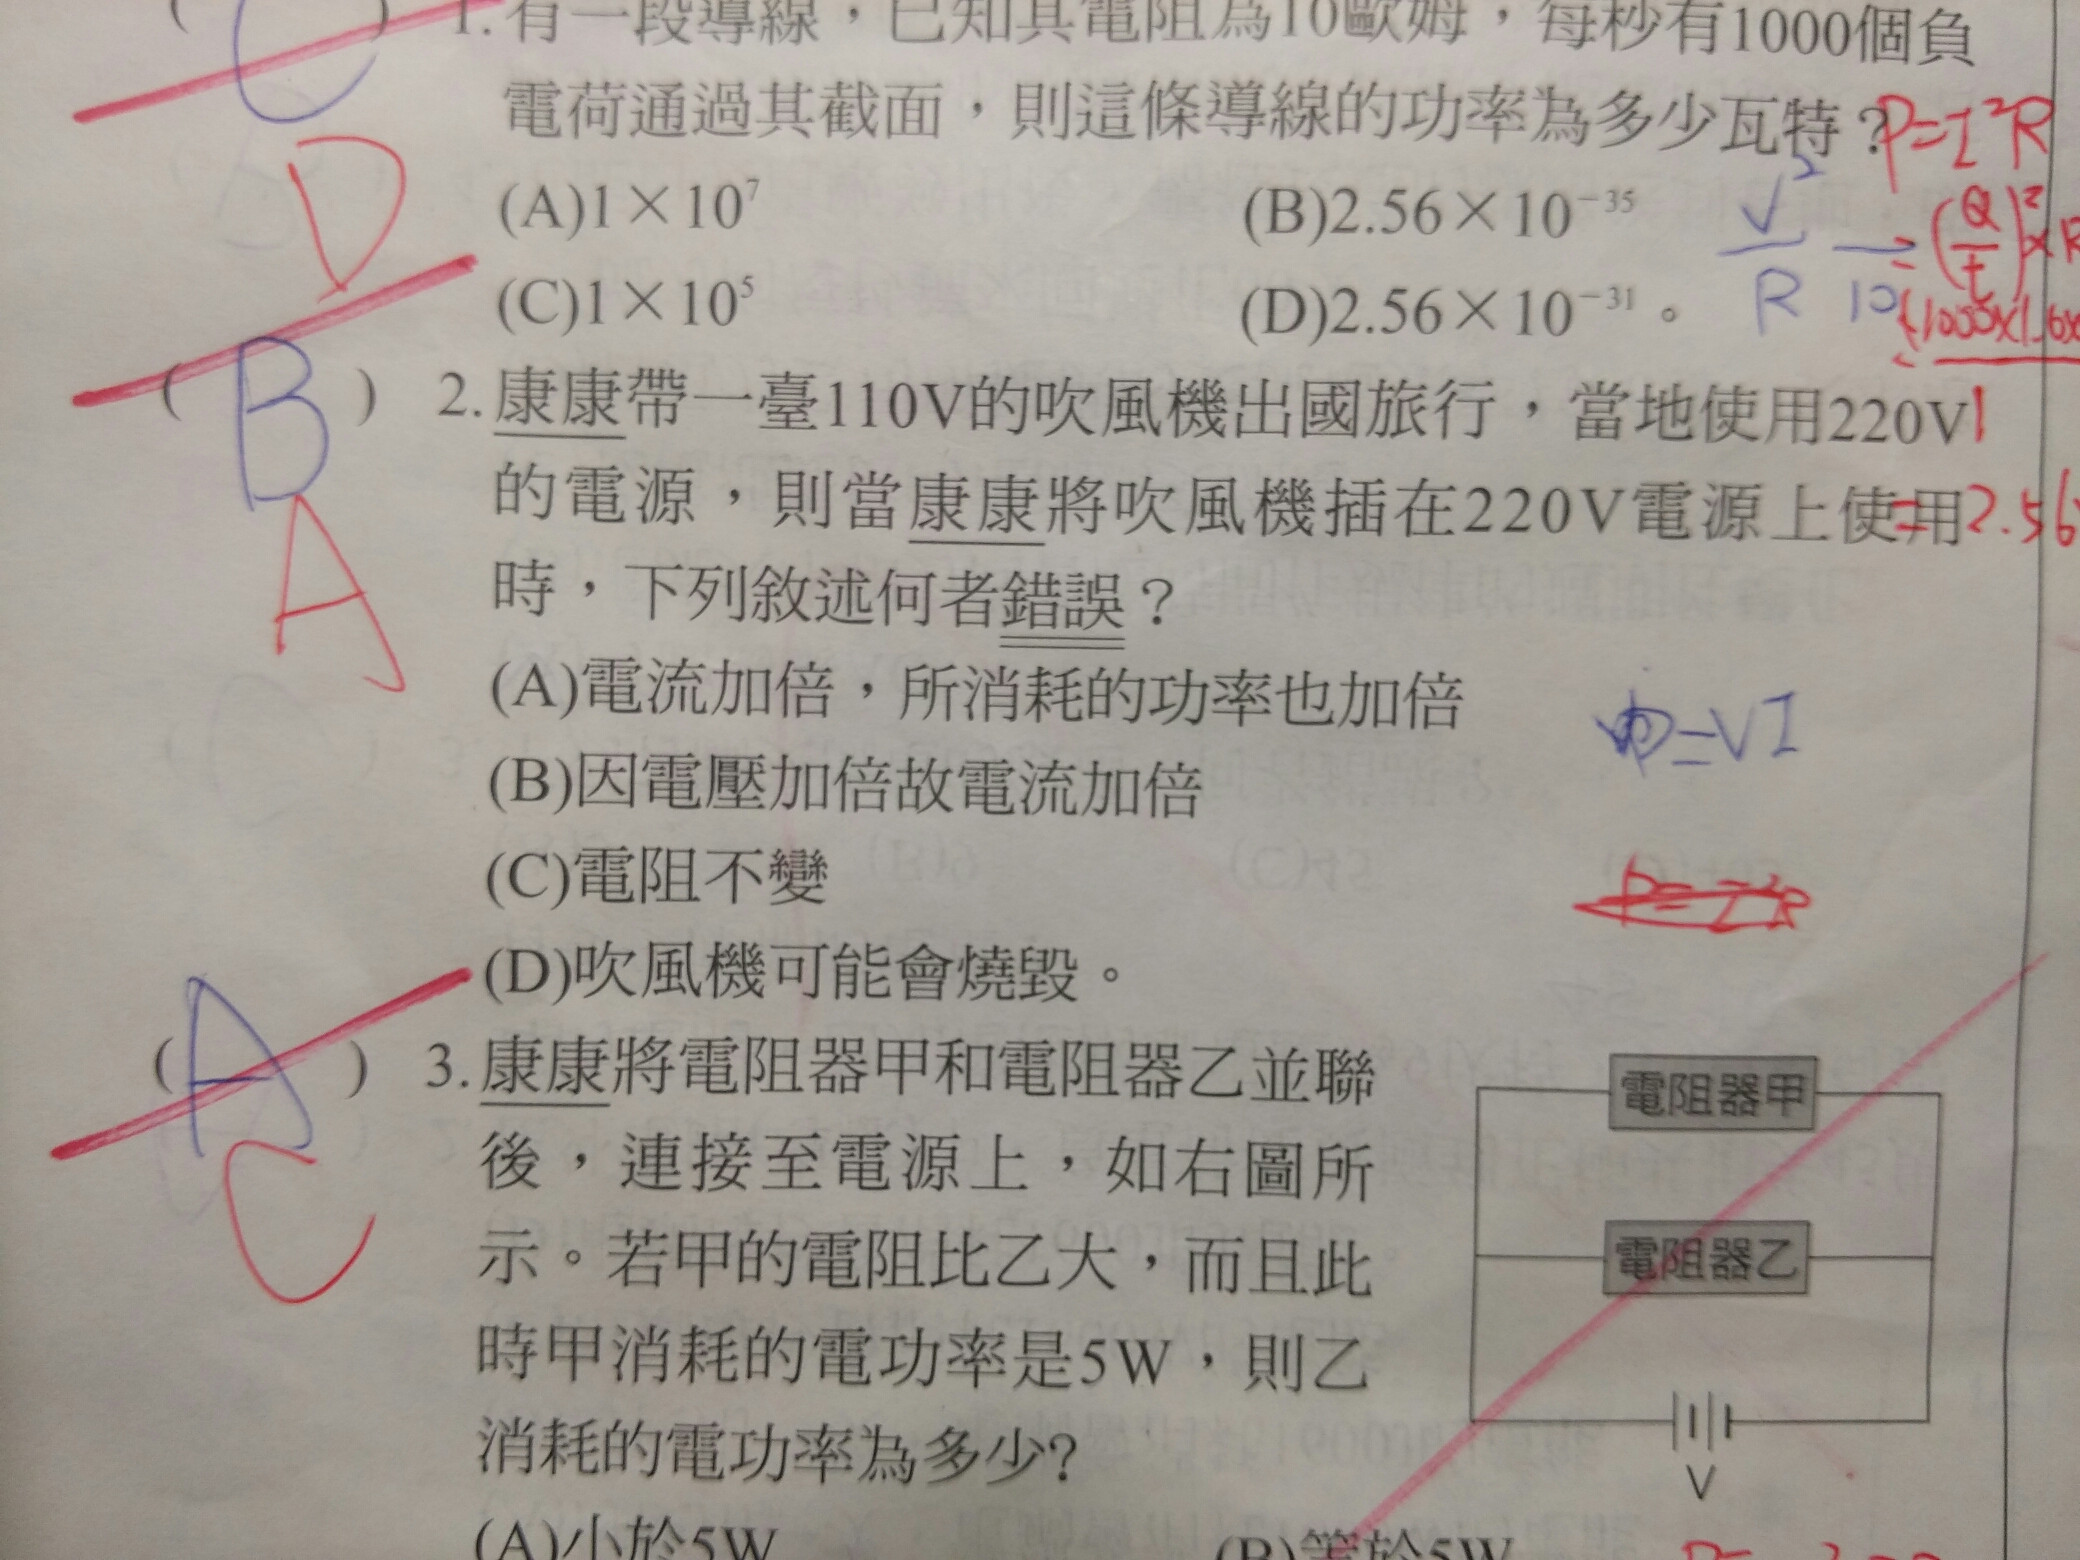 ( C ) 1.有一段導線，已知其電阻為10歐姆，每秒有1000個負
電荷通過其截面，則這條導線的功率為多少瓦特？
P=I²R
(A)1×10⁷ (B)2.56×10⁻³⁵
V²/R /10
=(Q/t)²×R
D
(C)1×10⁵ (D)2.56×10⁻³¹。
(1000×1.6×
1
( B ) 2.康康帶一臺110V的吹風機出國旅行，當地使用220V
的電源，則當康康將吹風機插在220V電源上使用
=2.56
A
時，下列敘述何者錯誤？
(A)電流加倍，所消耗的功率也加倍
P=VI
(B)因電壓加倍故電流加倍
(C)電阻不變
P=I²R
(D)吹風機可能會燒毀。
( A ) 3.康康將電阻器甲和電阻器乙並聯
後，連接至電源上，如右圖所
C
示。若甲的電阻比乙大，而且此
時甲消耗的電功率是5W，則乙
消耗的電功率為多少?
電阻器甲
電阻器乙
V
(A)小於5W (B)等於5W